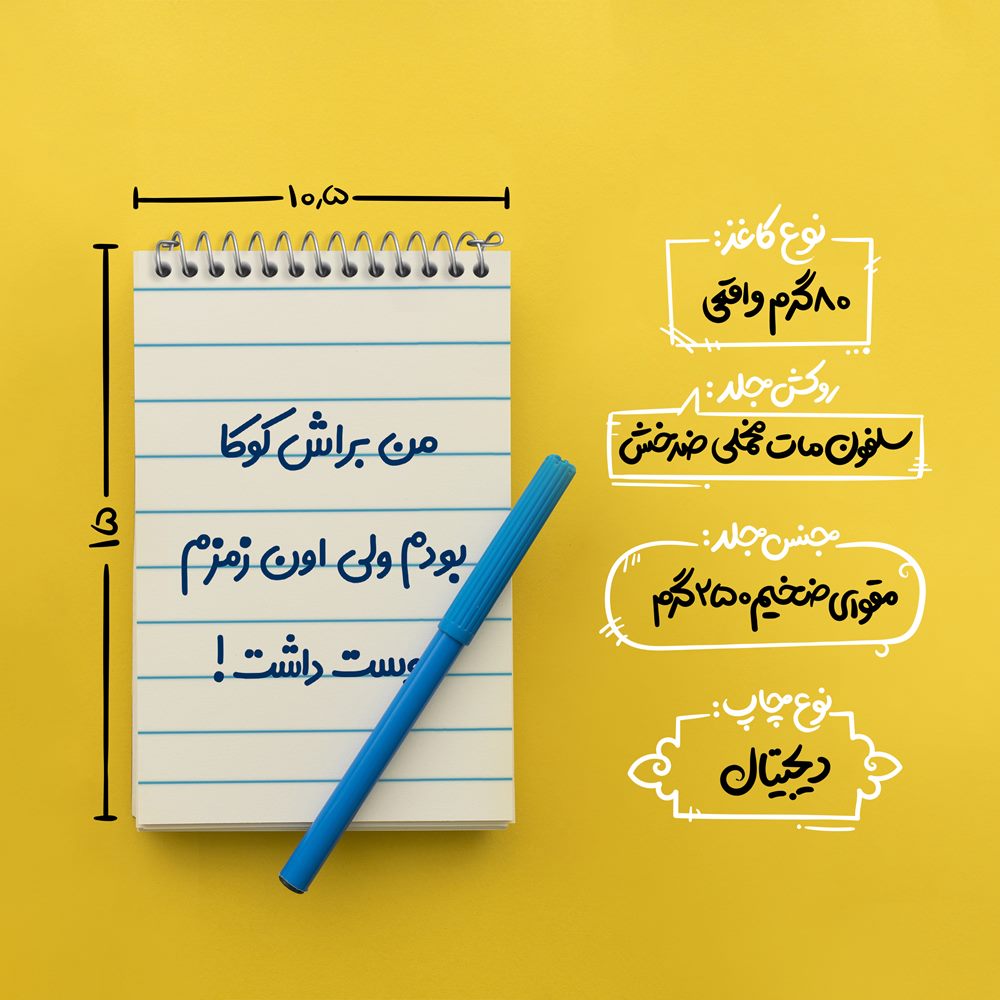 ۱۰٫۵
۱۵
من براش کوکا
بودم ولی اون زمزم
دوست داشت!
نوع کاغذ:
۸۰گرم واقعی
روکش جلد:
سلفون مات مخملی ضدخش
جنس جلد:
مقوای ضخیم ۲۵۰گرم
نوع چاپ:
دیجیتال